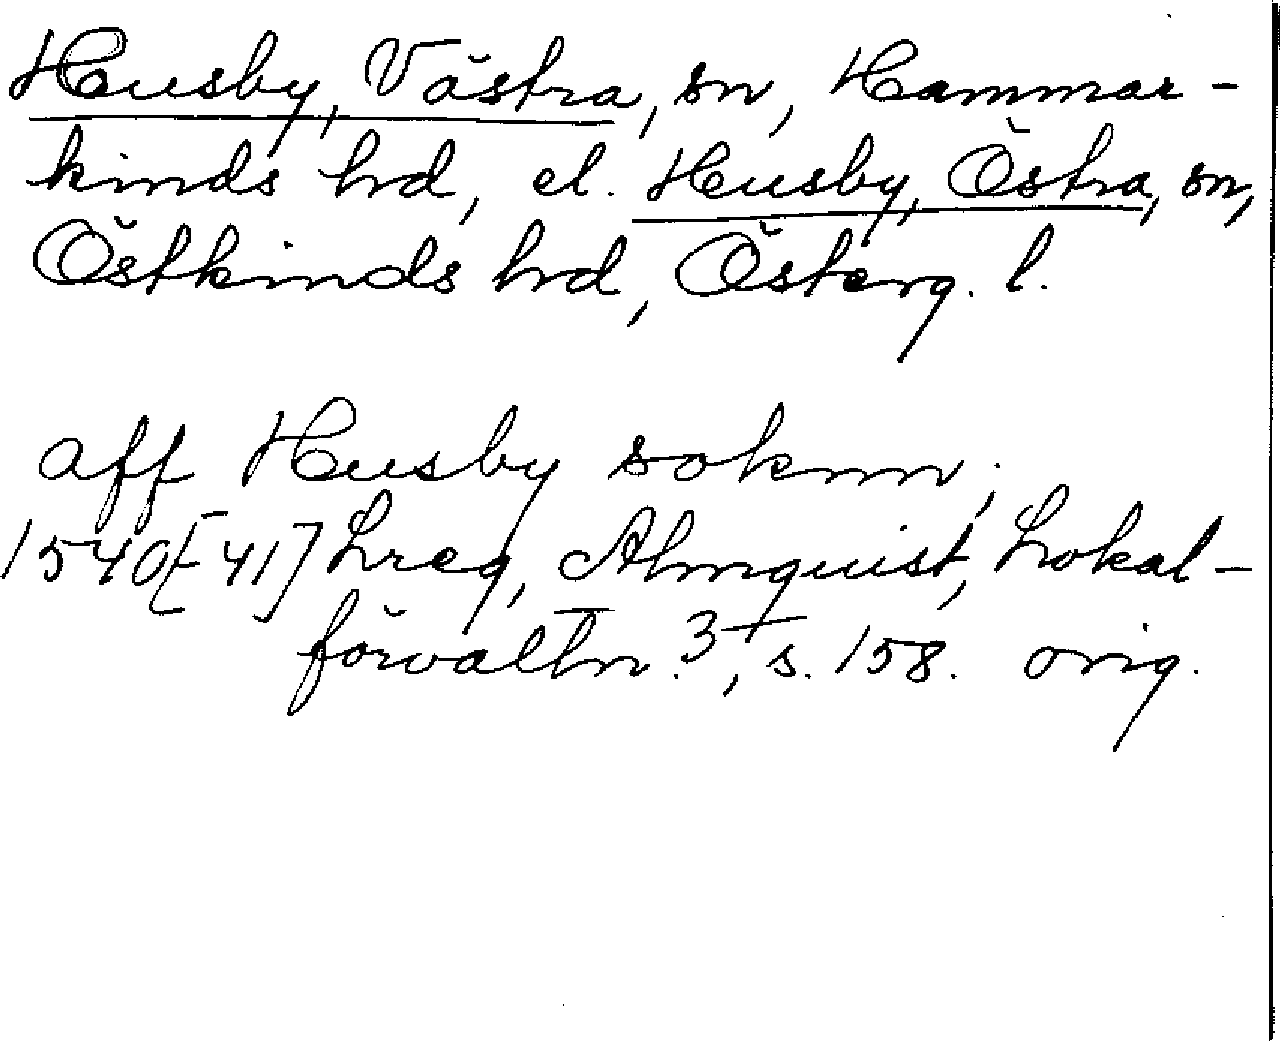 Husby, Västra, sn, Hammar-
kinds hrd, el. Husby, Östra, sn,
Östkinds hrd, Österg. l.
aff Husby soknn;
1540[-41] Lreg, Almquist, Lokal-
förvaltn. 3, s. 158. orig.